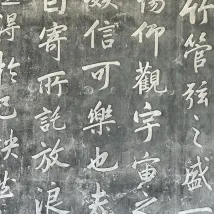 竹管弦之盛一
暢仰觀宇宙之
娛信可樂也夫
因寄所託放浪
得於己快然